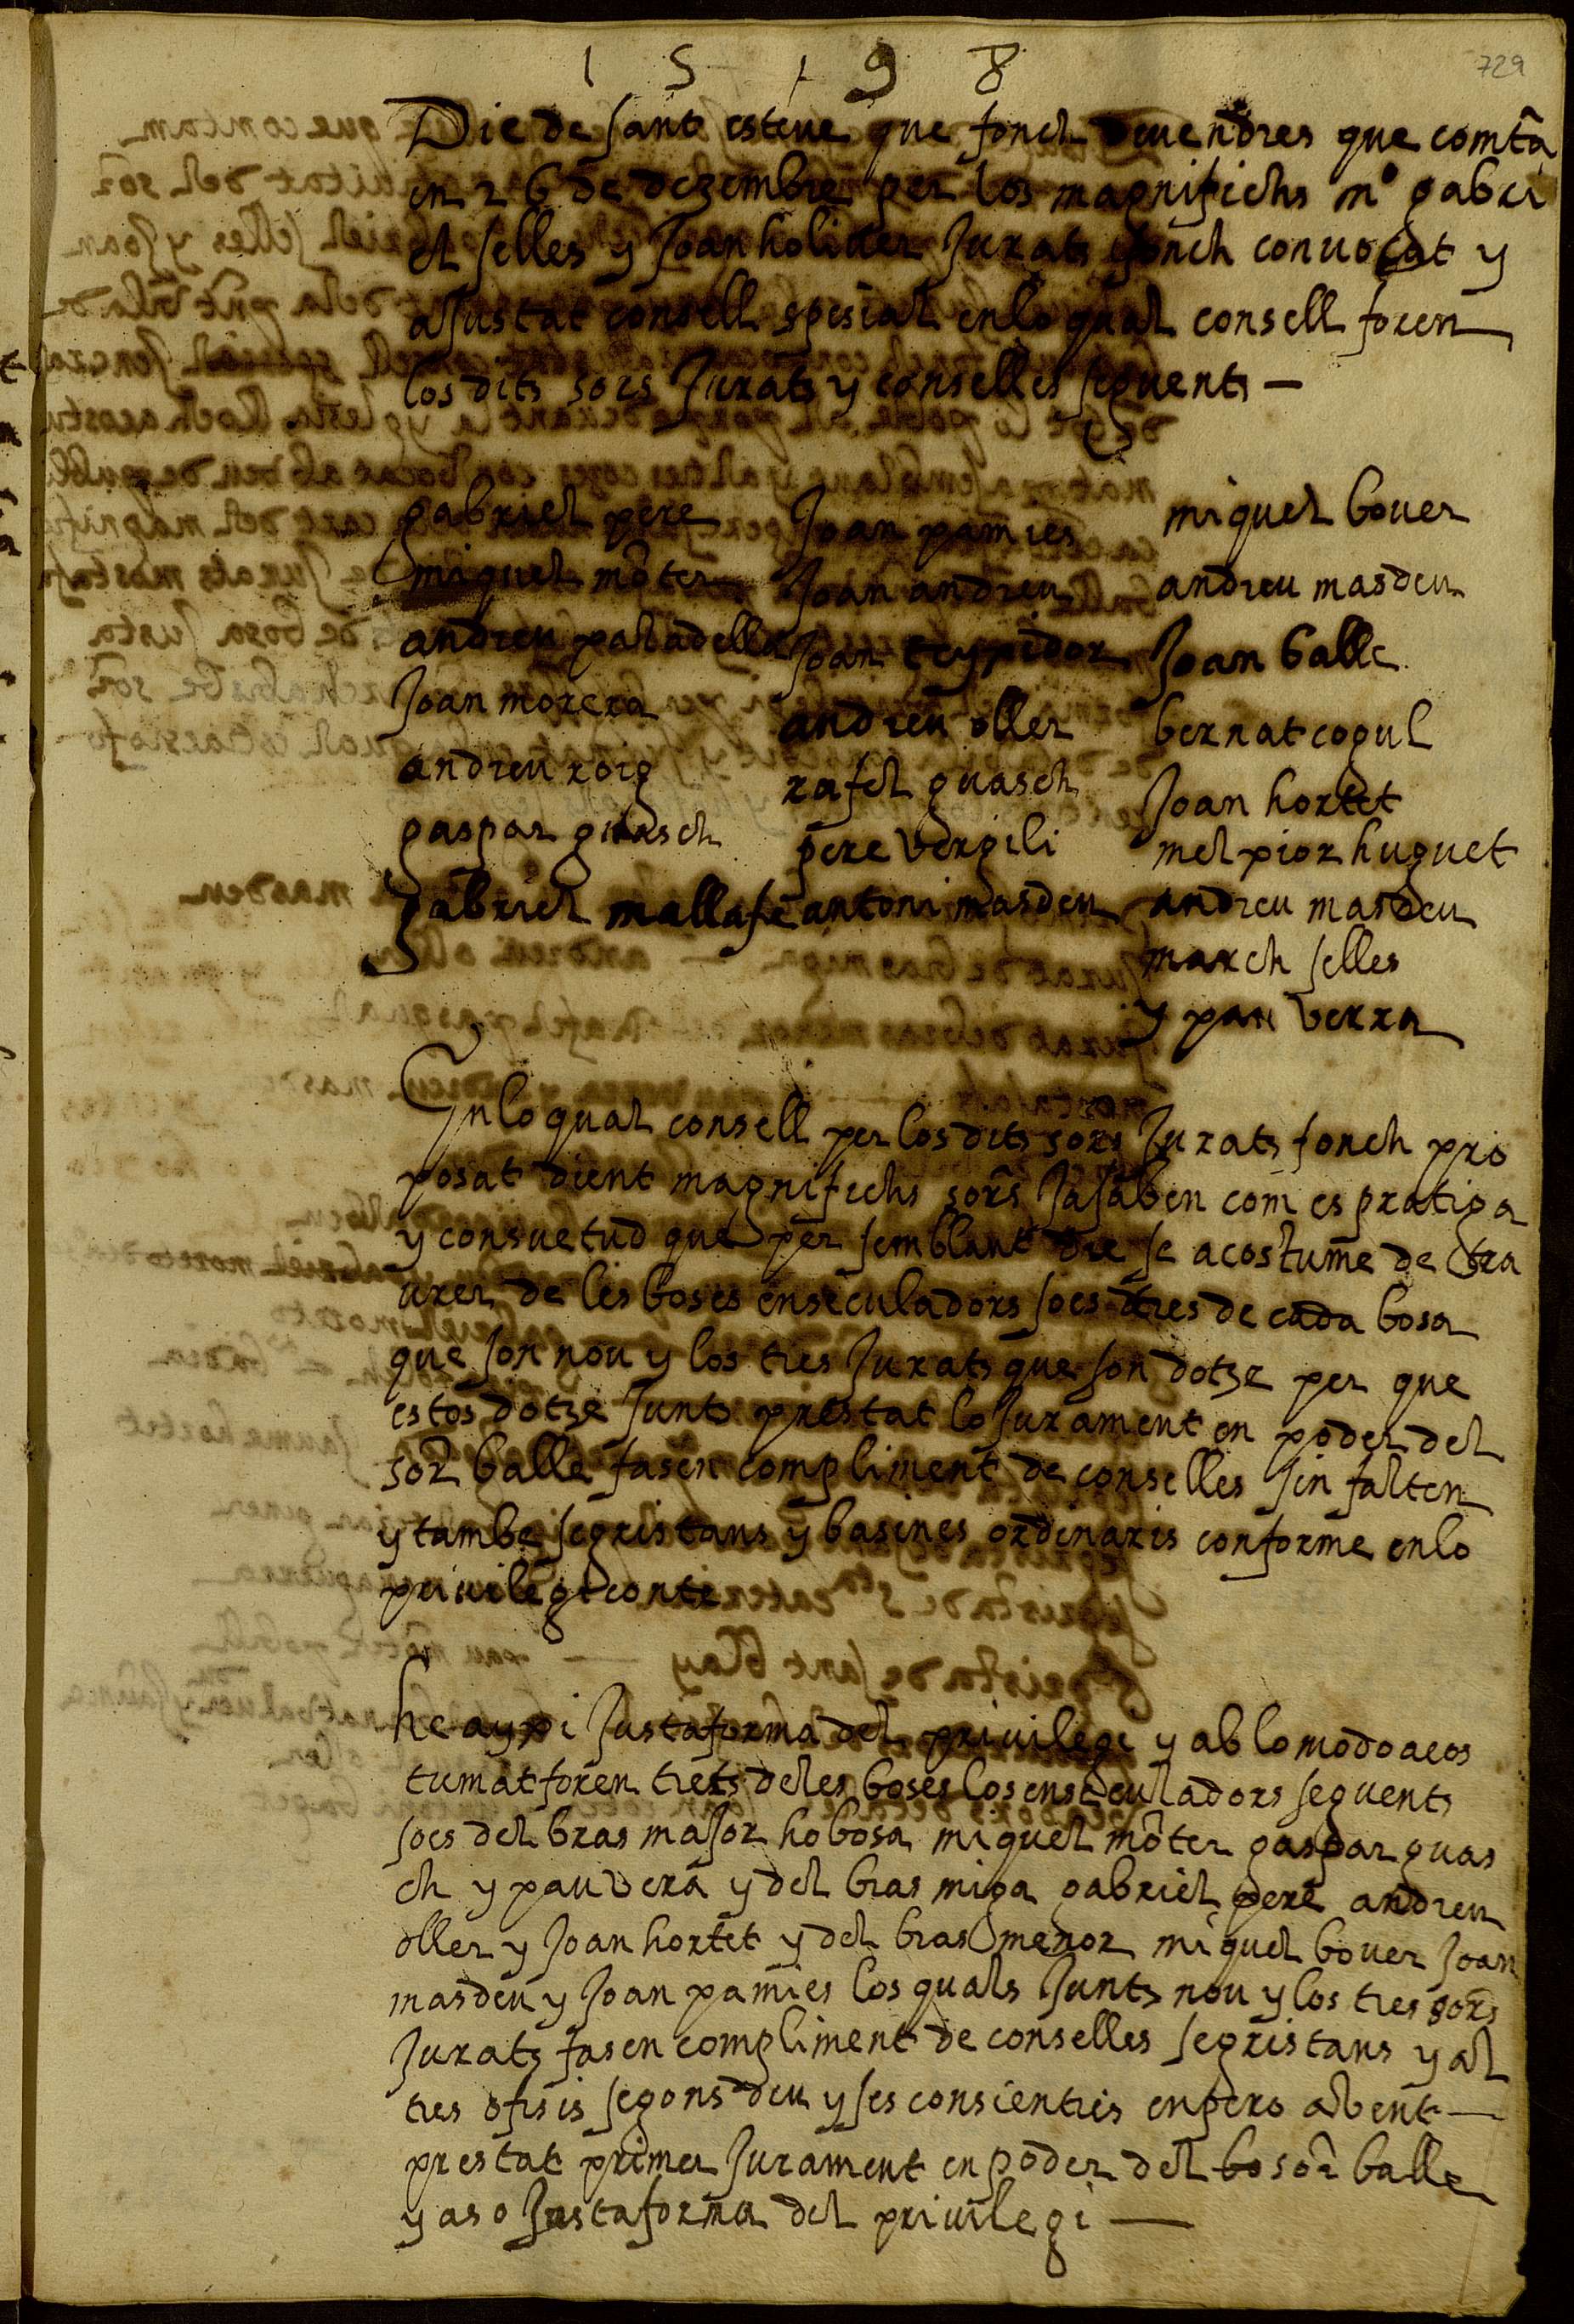 1598
729
Die de sant esteue que fonch deuendres que comtã
en 26 de dezembre per los magnifichs mº gabri
el selles y Joan holiuer Jurats fonch conuocat y
aJustat consell spesial en lo qual consell foren
los dits sors Jurats y conselles seguents —
gabriel pere
miquel mõter
andreu paladella
Joan morera
andreu roig
gaspar guasch
gabriel mallafre
Joan pamies
Joan andreu
Joan teypidor
andreu oller
rafel guasch
pere vergili
antoni masdeu
miquel bouer
andreu masdeu
Joan balle
bernat cogul
Joan hortet
melpior huguet
andreu masdeu
march selles
y pau verra
En lo qual consell per los dits sors Jurats fonch pro
posat dient magnifichs sors Ja saben com es pratiga
y consuetud que per semblant die se acostume de tra
urer de les boses enseculadors soes tres de cada bosa
que son nou y los tres Jurats que son dotze per que
estos dotze Junts prestat lo Jurament en poder del
sor balle fasen compliment de conselles sin falten
y tambe segristans y basines ordinaris conforme en lo
priuilegi conte
he aypi Justa forma del priuilegi y ab lo modo acos
tumat foren trets de les boses los enseculadors seguents
soes del bras maJor ho bosa miquel mõter gaspar guas
ch y pau vera y del bras miga gabriel pere andreu
oller y Joan hortet y del bras menor miquel bouer Joan
masdeu y Joan pamies los quals Junts nou y los tres sors
Jurats fasen compliment de conselles segristans y al
tres ofisis segons deu y ses consienties enpero abent —
prestat primer Jurament en poder del bo sor balle
y aso Justa forma del priuilegi —